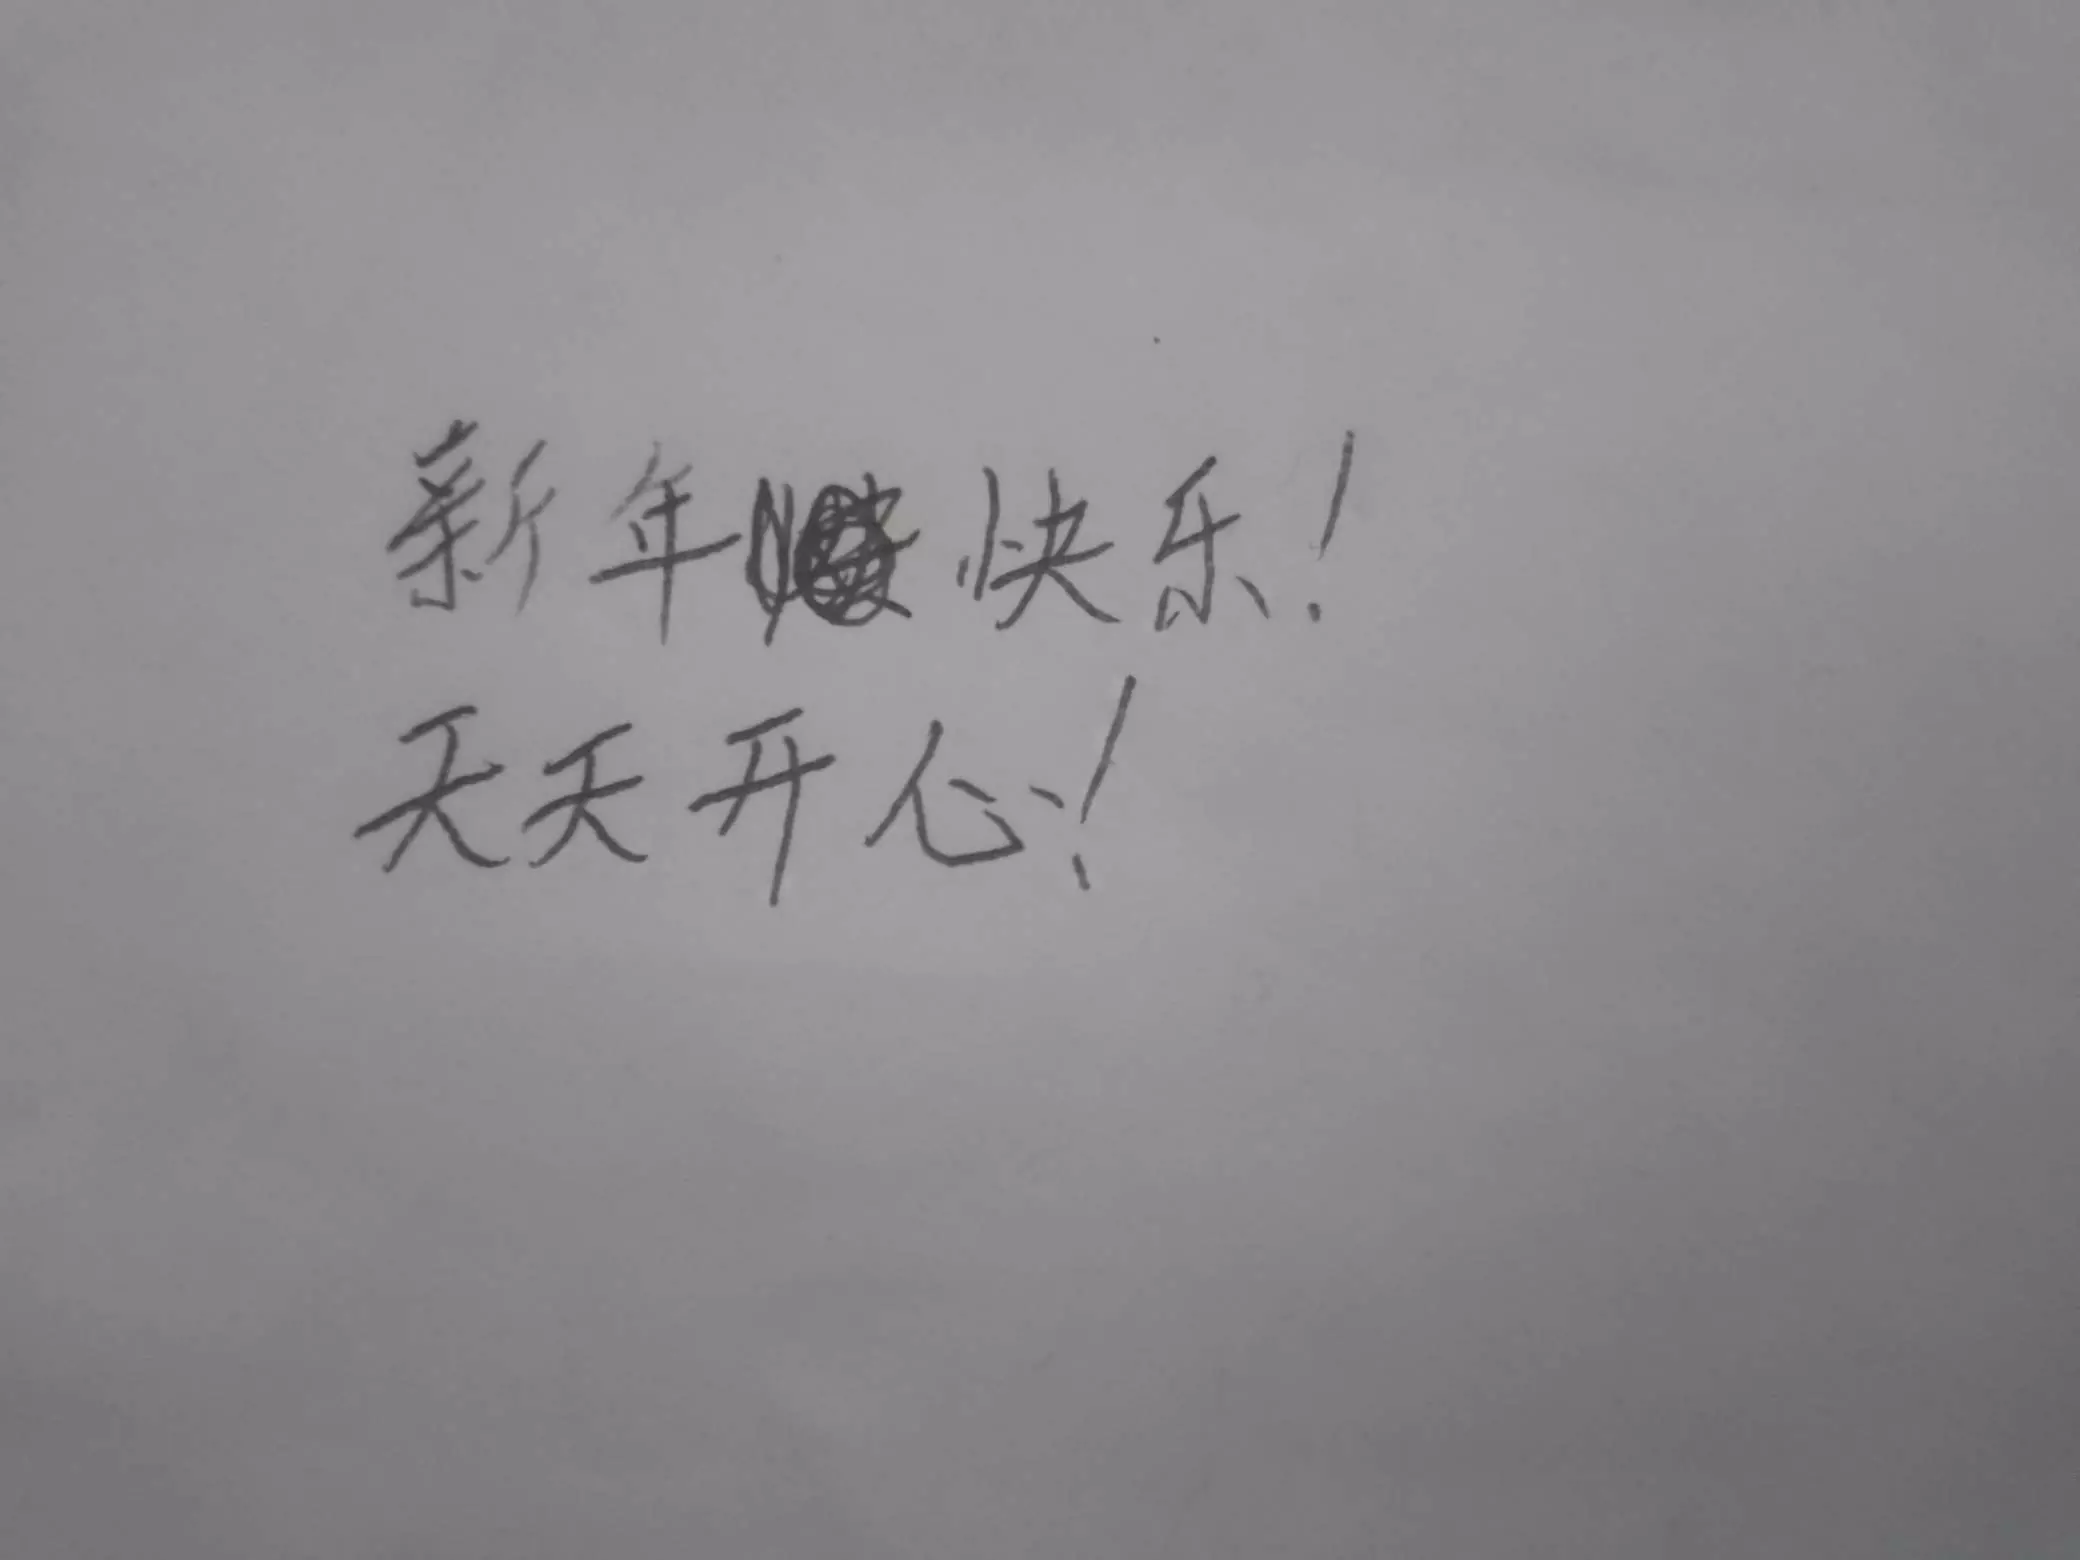 新年快乐!
天天开心!